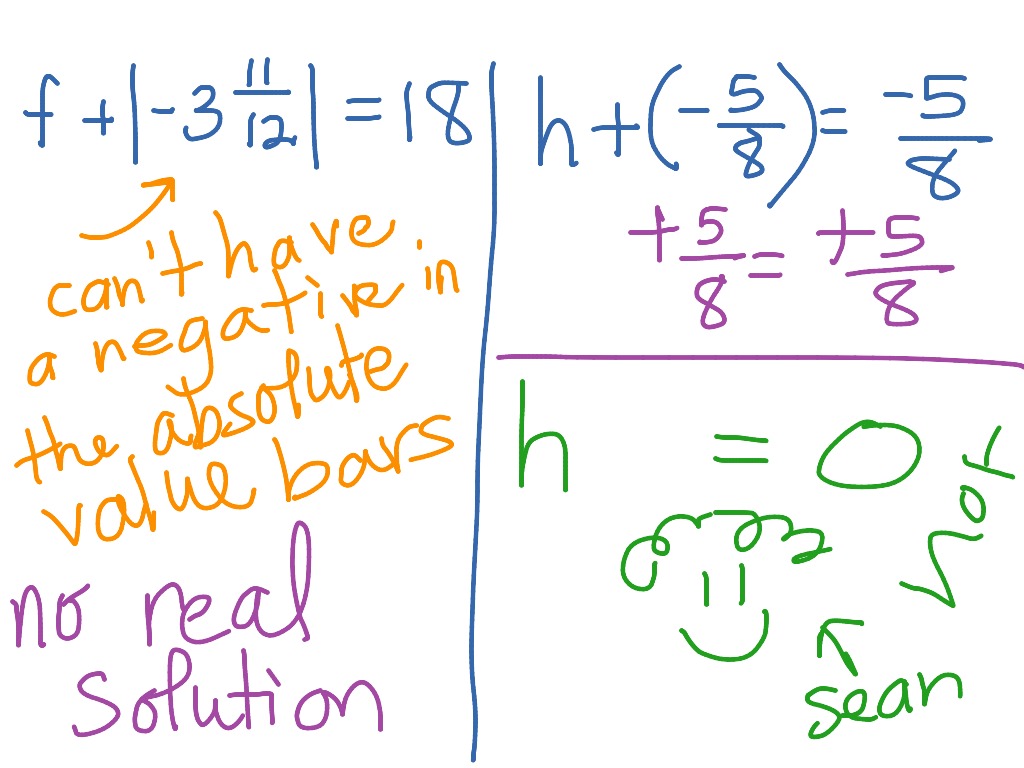 f + |-3 11/12| = 18
can't have
a negative in
the absolute
value bars
no real
solution
h + (-5/8) = -5/8
+5/8 = +5/8
h = 0
sean